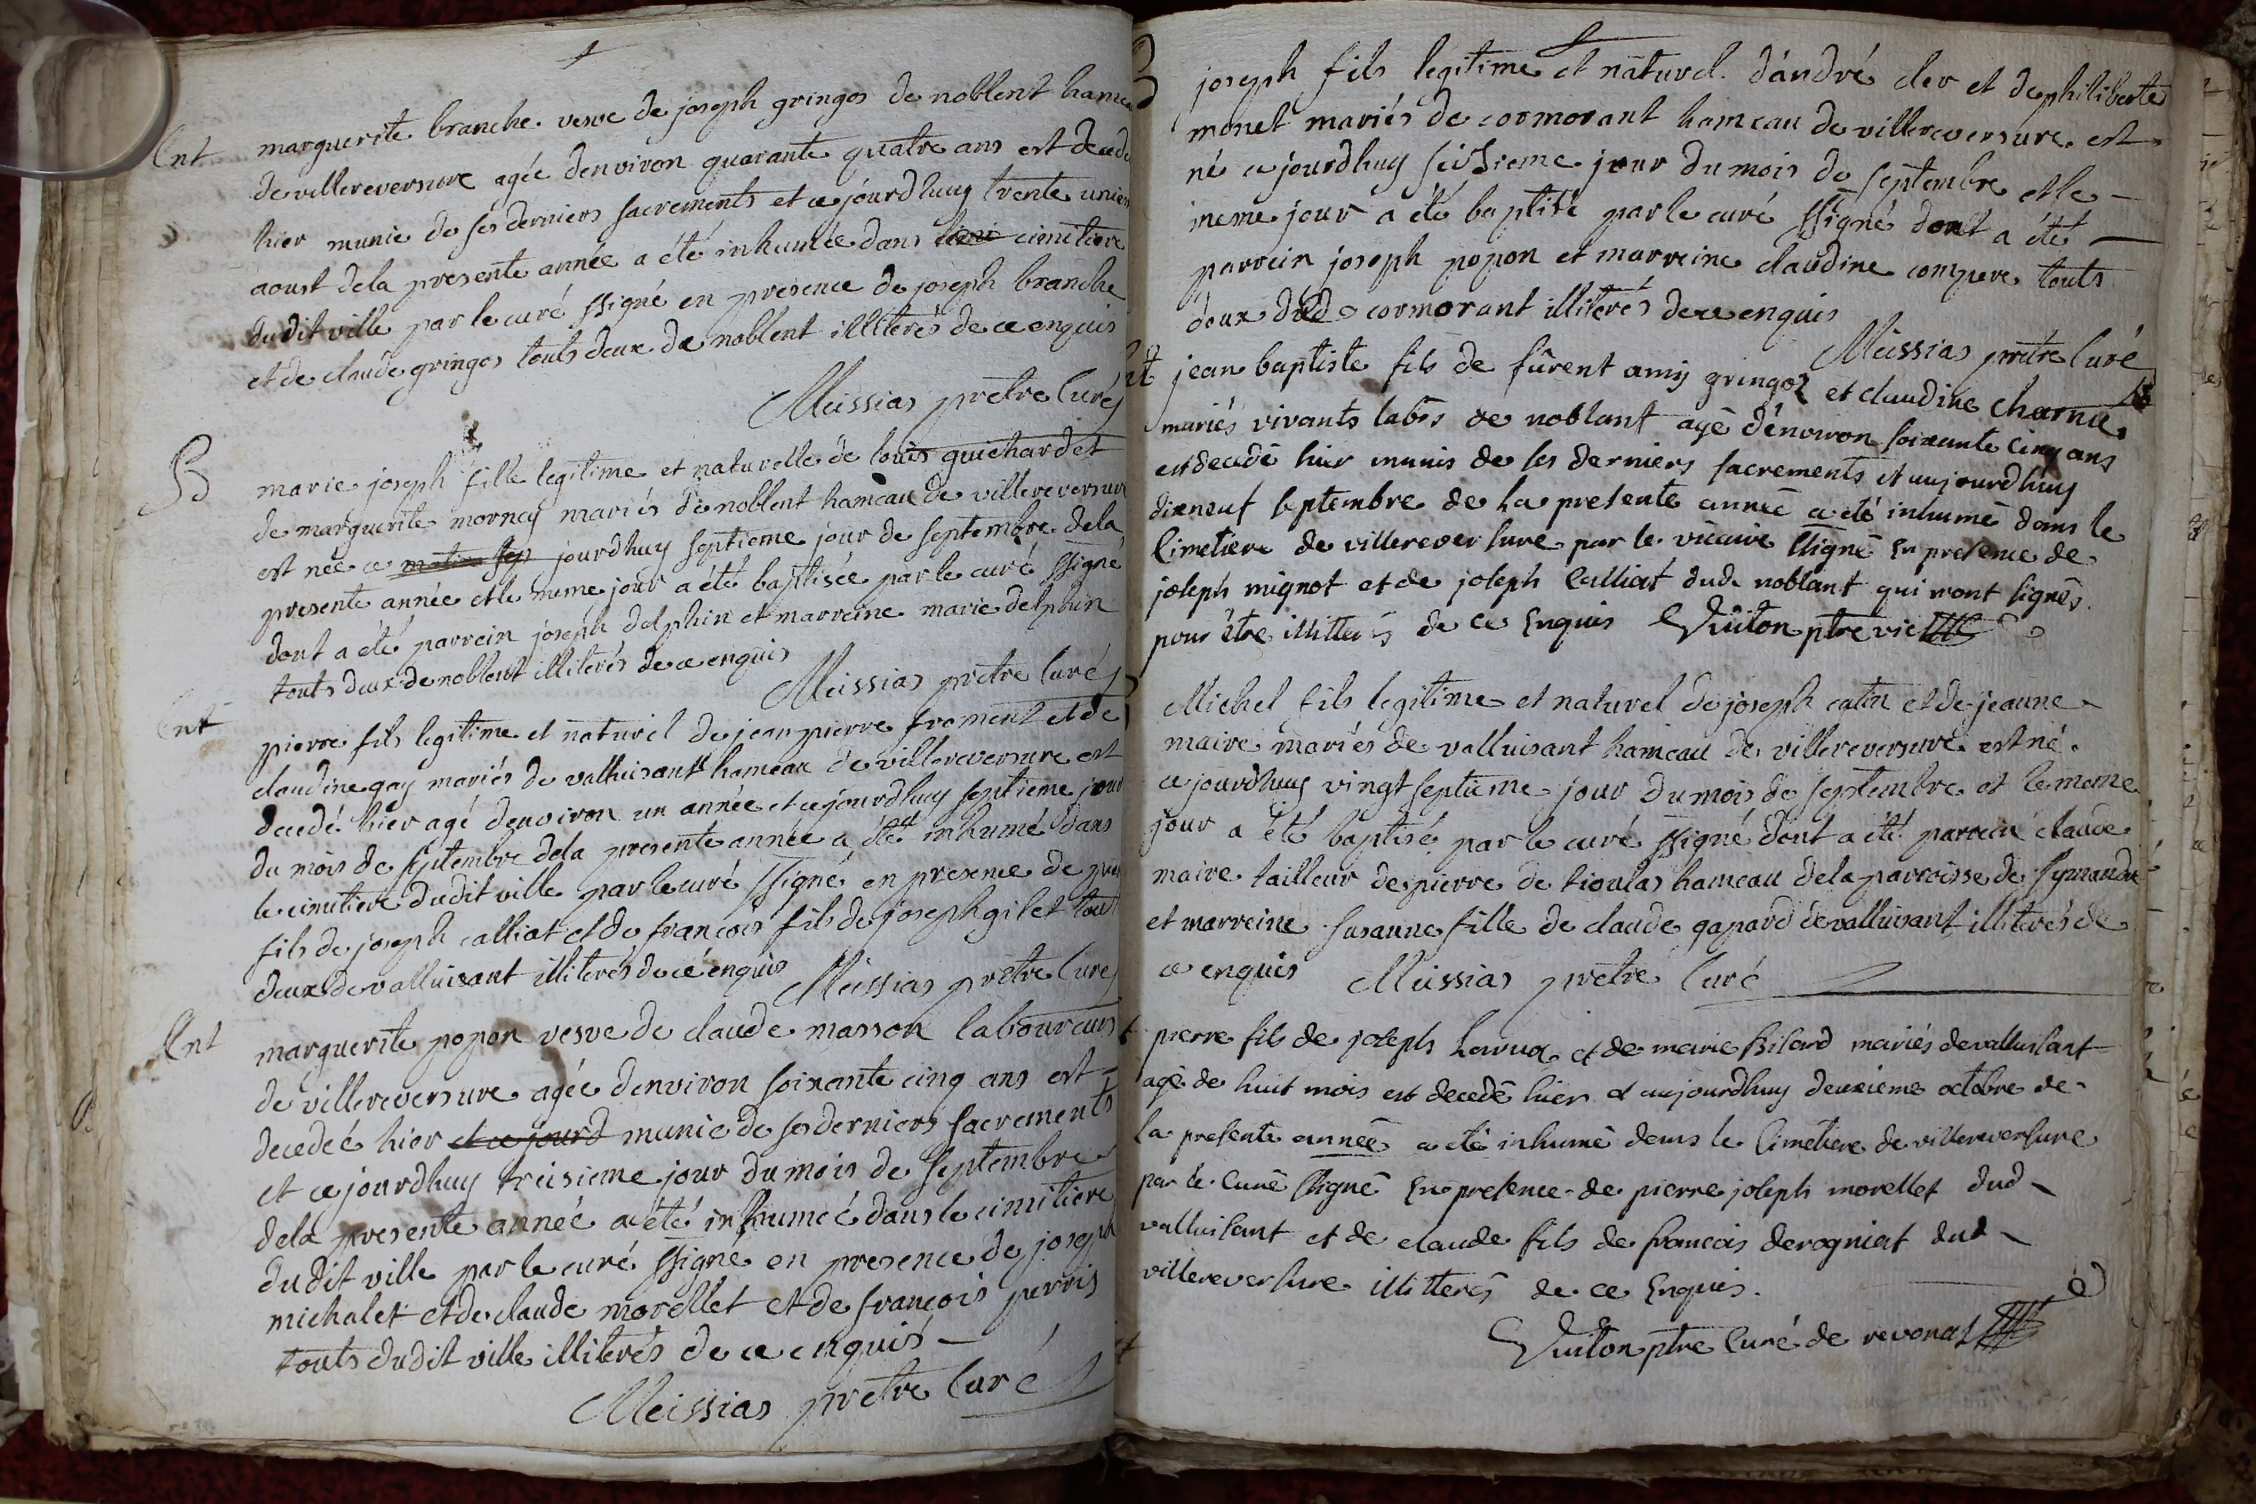 Ent marguerite branche vesve de joseph gringos de noblent hameau
de villereversure agée denviron quarante quatre ans est decedé
hier munie de ses derniers sacrements et ce jourdhuy trente unieme
aoust dela presente année a été inhumée dans cimitiere
dudit ville par le curé ssigné en presence de joseph branche
et de claude gringos touts deux de noblent illiterés de ce enquis
Meissias prêtre Curé
B marie joseph fille legitime et naturelle de louis guichard et
de marguerite mornay mariés de noblent hameau de villereversure
est née ce jourdhuy septieme jour de septembre dela
presente année et le meme jour a été baptisée par le curé ssigné
dont a été parrein joseph delphin et marreine marie delphin
touts deux de noblent illiterés de ce enquis
Meissias prêtre Curé
Ent pierre fils legitime et naturel de jean pierre froment et de
claudine gay mariés de valluisant hameau de villereversure est
decedé hier agé denviron un année et ce jourdhuy septieme jour
du mois de septembre dela presente année a été inhumé dans
le cimitiere dudit ville par le curé ssigné en presence de
fils de joseph calliat et de francois fils de joseph gilet tout
deux de valluisant illiterés de ce enquis
Meissias prêtre Curé
Ent marguerite popon vesve de claude masson laboureurs
de villereversure agée denviron soixante cinq ans est
decedeé hier et ce jourd munie de ses derniers sacrements
et ce jourdhuy treisieme jour du mois de septembre
dela presente année a été inhumeé dans le cimitiere
dudit ville par le curé ssigné en presence de joseph
michalet et de claude morellet et de françois perris
touts dudit ville illiterés de ce enquis
Meissias prêtre Curé
joseph fils legitime et naturel d'andré cler et de philiberte
monet mariés de cormorant hameau de villereversure est
né ce jourdhuy seisieme jour du mois de septembre et le
meme jour a été baptisé par le curé ssigné dont a été
parrein joseph popon et marreine claudine compere touts
deux dud cormorant illiterés de ce enquis
Meissias prêtre Curé
Ent jean baptiste fils de fûrent amy gringoz et claudine
mariés vivants labrs de noblant agé d'environ soixante cinq ans
est decedé hier munis de ses derniers sacrements et aujourdhuy
dixneuf septembre de la presente année a été inhumé dans le
Cimetiere de villereversure par le vicaire ssigné En presence de
joseph mignot et de joseph Calliat dud. noblant qui nont signés
pour être illitterés de ce Enquis Vuiton ptre vic
Michel fils legitime et naturel de joseph catin et de jeanne
maire mariés de valluisant hameau de villereversure est né
ce jourdhuy vingt septieme jour du mois de septembre et le meme
jour a été baptisé par le curé ssigné dont a été parrein claude
maire tailleur de pierre de tioulas hameau dela parroisse de symandre
et marreine susanne fille de claude gapard de valluisant illiterés de
ce enquis Meissias prêtre Curé
pierre fils de joseph et de marie mariés de valluisant
agé de huit mois est decedé hier et aujourdhuy deuxieme octobre de
la presente année a été inhumé dans le Cimetiere de villereversure
par le Curé ssigné En presence de pierre joseph morellet dud
valluisant et de claude fils de francois derogniat dud
villereversure illitterés de ce Enquis.
Vuiton ptre Curé de revonas